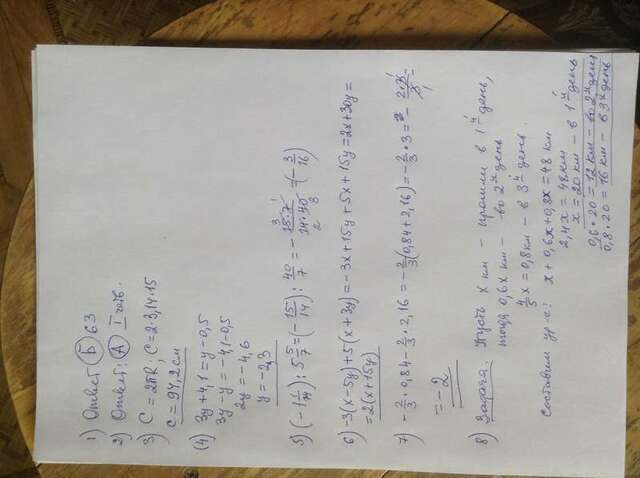 1) Ответ Б 63
2) Ответ: А I четв.
3) C = 2πR; C = 2·3,14·15
C = 94,2 см
(4) 3y + 4,1 = y - 0,5
3y - y = -4,1 - 0,5
2y = -4,6
y = -2,3
5) (-1 1/14) : 5 5/7 = (-15/14) : 40/7 = - 15·7/14·40 = (-3/16)
6) -3(x - 5y) + 5(x + 3y) = -3x + 15y + 5x + 15y = 2x + 30y =
= 2(x + 15y)
7) -2/3 · 0,84 - 2/3 · 2,16 = -2/3(0,84 + 2,16) = -2/3 · 3 = - 2·3/3 =
= -2
8) Задача: Пусть x км - прошли в 1й день,
тогда 0,6x км - во 2й день
4/5 x = 0,8 км - в 3й день.
Составим ур-е: x + 0,6x + 0,8x = 48 км
2,4x = 48км
x = 20 км - в 1й день
0,6·20 = 12 км - во 2й день
0,8·20 = 16 км - в 3й день